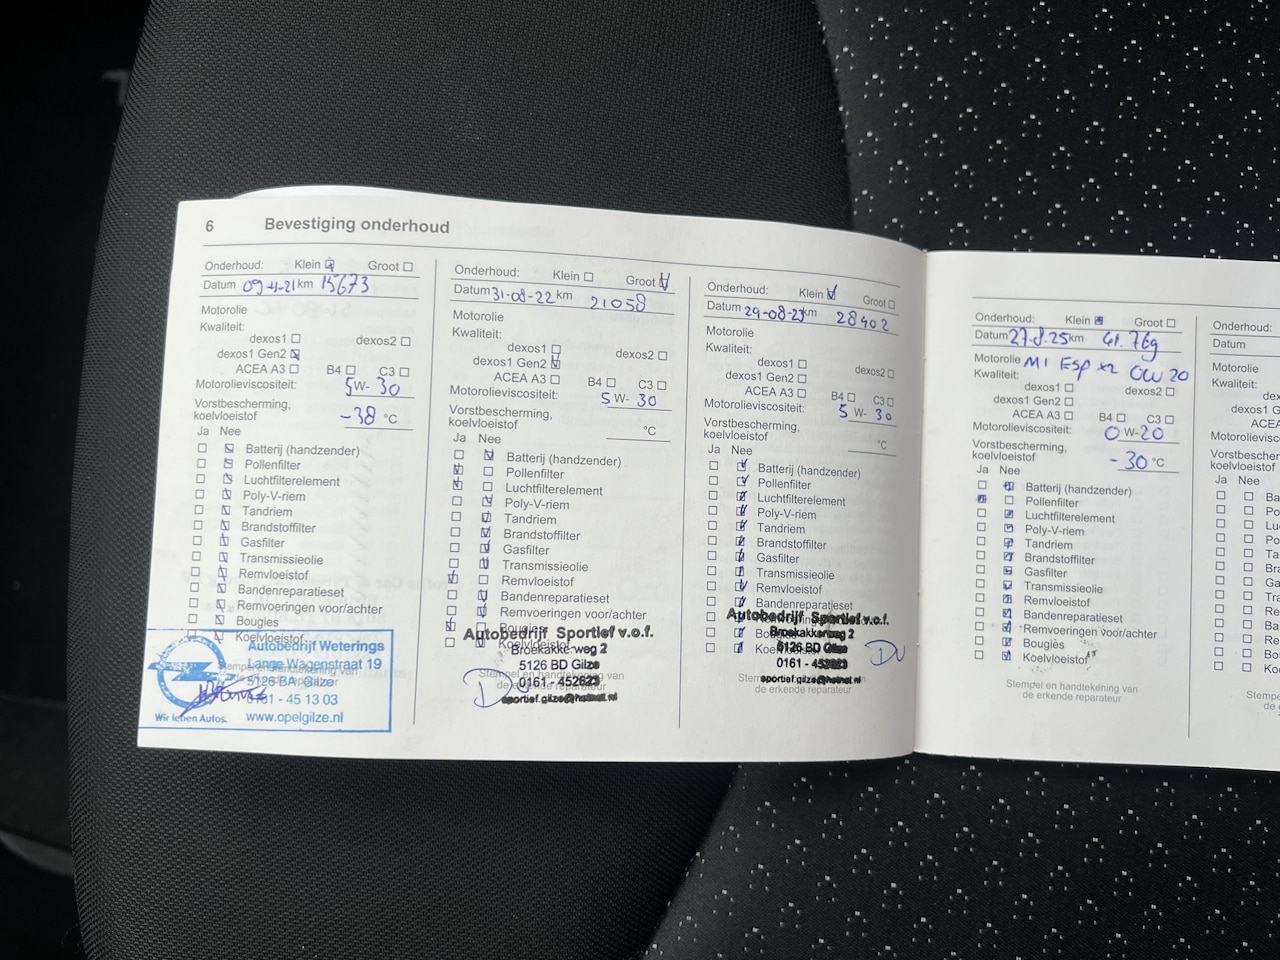 6 Bevestiging onderhoud
Onderhoud: Klein Groot
Datum 09-11-21 km 15673
Motorolie
Kwaliteit:
dexos1 dexos2
dexos1 Gen2
ACEA A3 B4 C3
Motorolieviscositeit: 5 W- 30
Vorstbescherming,
koelvloeistof -38 °C
Ja Nee
Batterij (handzender)
Pollenfilter
Luchtfilterelement
Poly-V-riem
Tandriem
Brandstoffilter
Gasfilter
Transmissieolie
Remvloeistof
Bandenreparatieset
Remvoeringen voor/achter
Bougies
Koelvloeistof
Autobedrijf Weterings
Lange Wagenstraat 19
5126 BA Gilze
0161 - 45 13 03
www.opelgilze.nl
Wir leben Autos.
Onderhoud: Klein Groot
Datum 31-08-22 km 21058
Motorolie
Kwaliteit:
dexos1 dexos2
dexos1 Gen2
ACEA A3 B4 C3
Motorolieviscositeit: 5 W- 30
Vorstbescherming,
koelvloeistof °C
Ja Nee
Batterij (handzender)
Pollenfilter
Luchtfilterelement
Poly-V-riem
Tandriem
Brandstoffilter
Gasfilter
Transmissieolie
Remvloeistof
Bandenreparatieset
Remvoeringen voor/achter
Bougies
Koelvloeistof
Autobedrijf Sportief v.o.f.
Broekakkerweg 2
5126 BD Gilze
0161 - 452623
sportief.gilze@hetnet.nl
Onderhoud: Klein Groot
Datum 29-08-23 km 28402
Motorolie
Kwaliteit:
dexos1 dexos2
dexos1 Gen2
ACEA A3 B4 C3
Motorolieviscositeit: 5 W- 30
Vorstbescherming,
koelvloeistof °C
Ja Nee
Batterij (handzender)
Pollenfilter
Luchtfilterelement
Poly-V-riem
Tandriem
Brandstoffilter
Gasfilter
Transmissieolie
Remvloeistof
Bandenreparatieset
Autobedrijf Sportief v.o.f.
Broekakkerweg 2
5126 BD Gilze
0161 - 452623
sportief.gilze@hetnet.nl
de erkende reparateur
Onderhoud: Klein Groot
Datum 27.8.25 km 41.769
Motorolie M1 ESP x2 0W 20
Kwaliteit:
dexos1 dexos2
dexos1 Gen2
ACEA A3 B4 C3
Motorolieviscositeit: 0 W-20
Vorstbescherming,
koelvloeistof -30 °C
Ja Nee
Batterij (handzender)
Pollenfilter
Luchtfilterelement
Poly-V-riem
Tandriem
Brandstoffilter
Gasfilter
Transmissieolie
Remvloeistof
Bandenreparatieset
Remvoeringen voor/achter
Bougies
Koelvloeistof
Stempel en handtekening van
de erkende reparateur
Onderhoud:
Datum
Motorolie
Kwaliteit:
Ja Nee